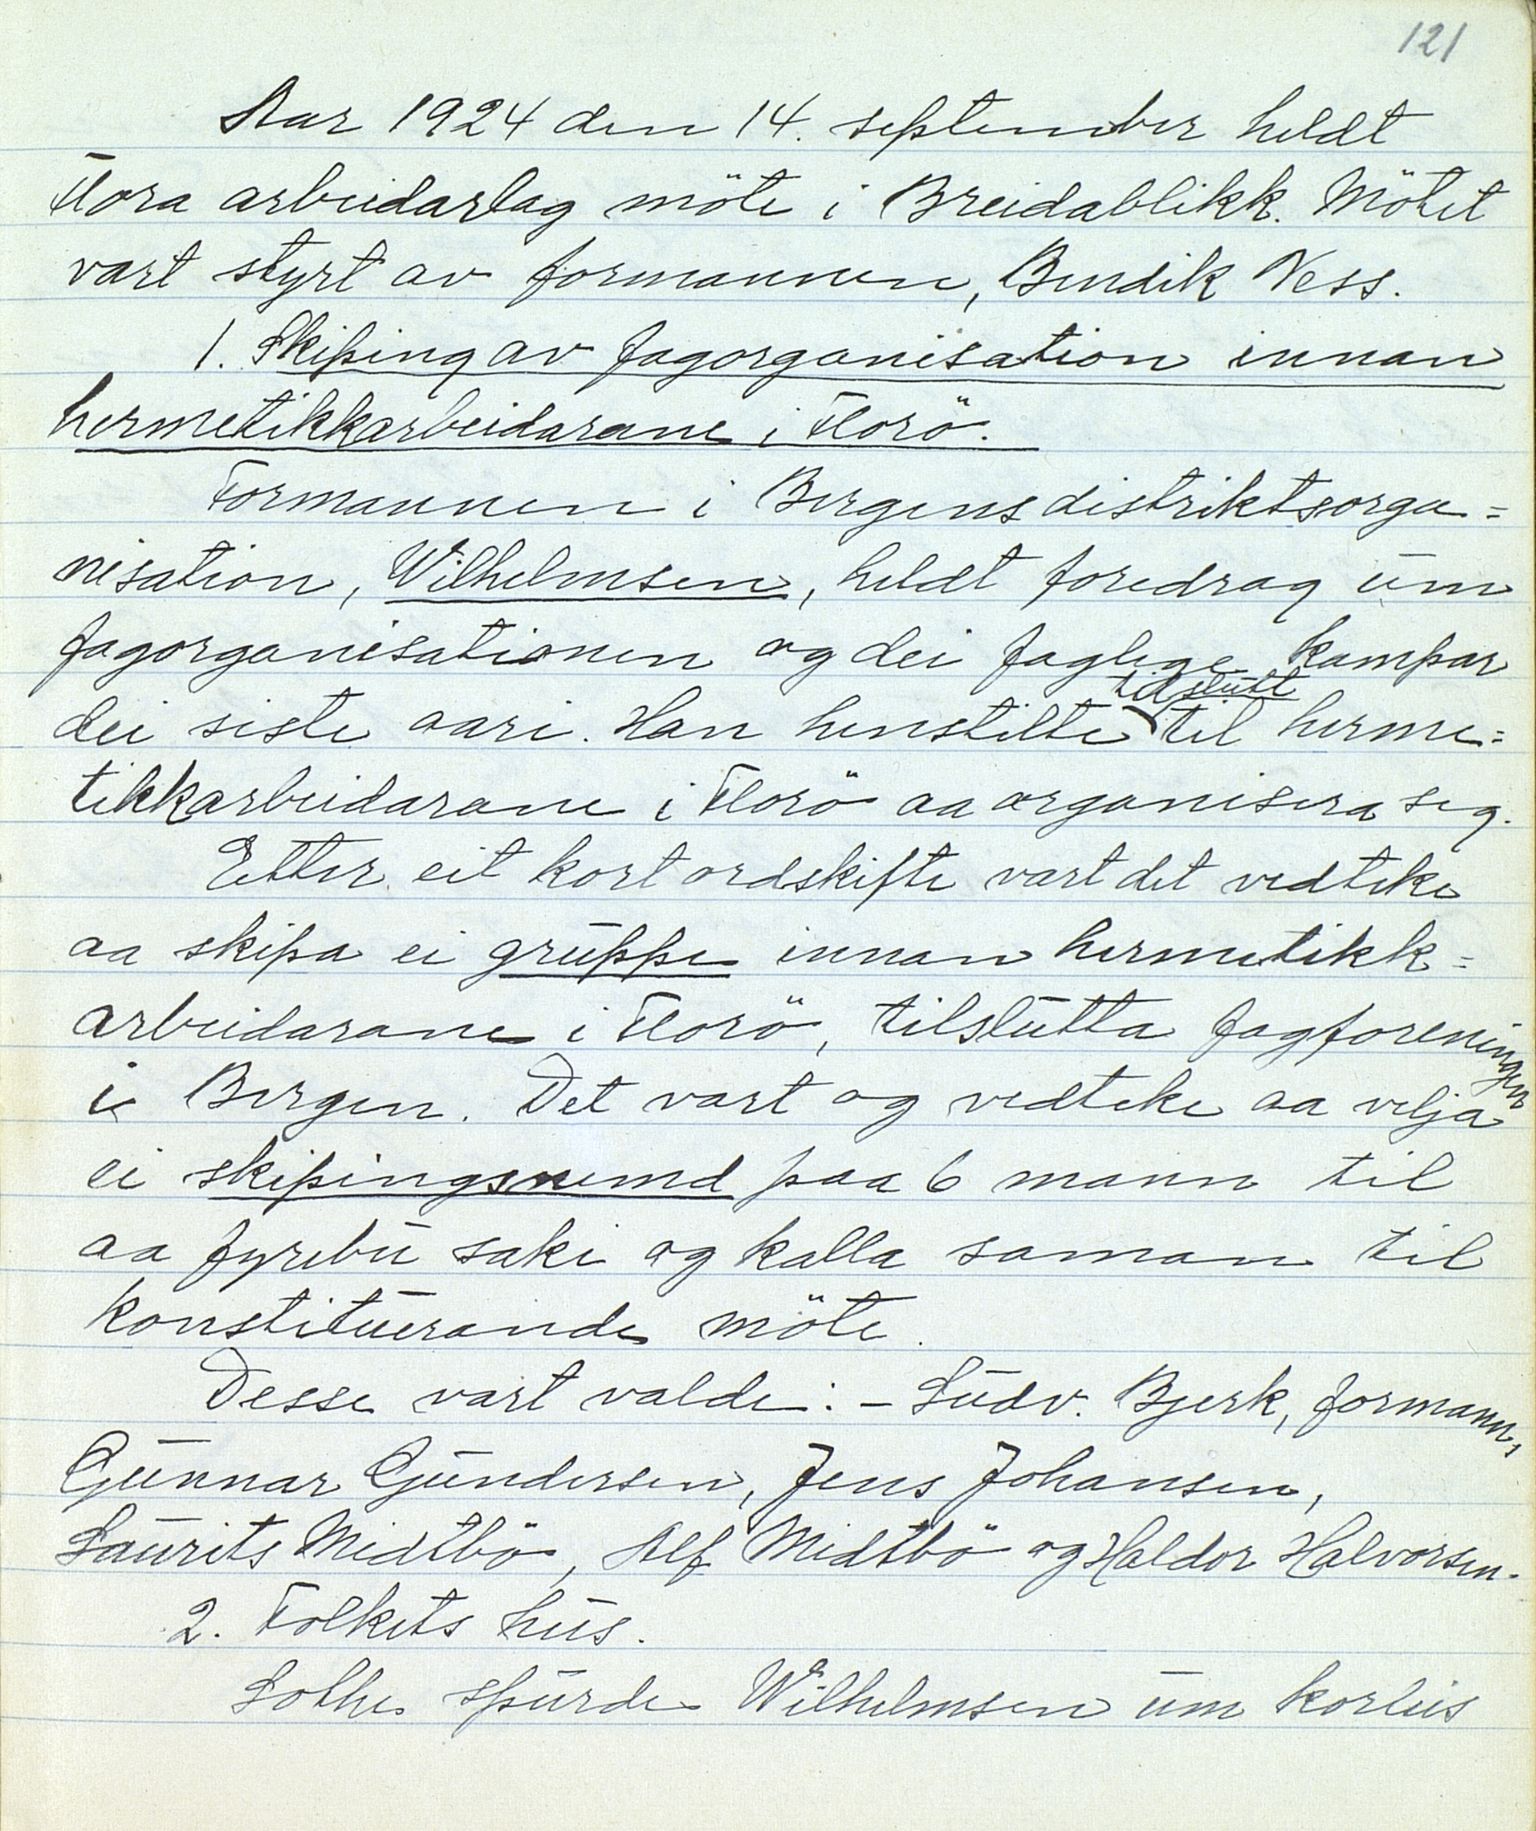 121
Aar 1924 den 14. september heldt
Flora arbeidarlag möte i Breidablikk. Mötet
vart styrt av formannen, Bendik Ness.
1. Skiping av fagorganisation innan
hermetikkarbeidarane i Florö.
Formannen i Bergens distriktsorga=
nisation, Wilhelmsen, heldt foredrag um
fagorganisationen og dei faglege kampar
tilslutt
dei siste aari. Han henstilte til herme=
tikkarbeidarane i Florö aa organisera seg.
Etter eit kort ordskifte vart det vedteke
aa skipa ei gruppe innan hermetikk=
arbeidarane i Florö, tilslutta fagforeningen
i Bergen. Det vart og vedteke aa velja
ei skipingsnemd paa 6 mann til
aa fyrebu saki og kalla saman til
konstituerande möte.
Desse vart valde: – Ludv. Bjerk, formann,
Gunnar Gundersen, Jens Johansen,
Laurits Midtbö, Alf Midtbö og Haldor Halvorsen.
2. Folkets hus.
Lothe spurde Wilhelmsen um korleis